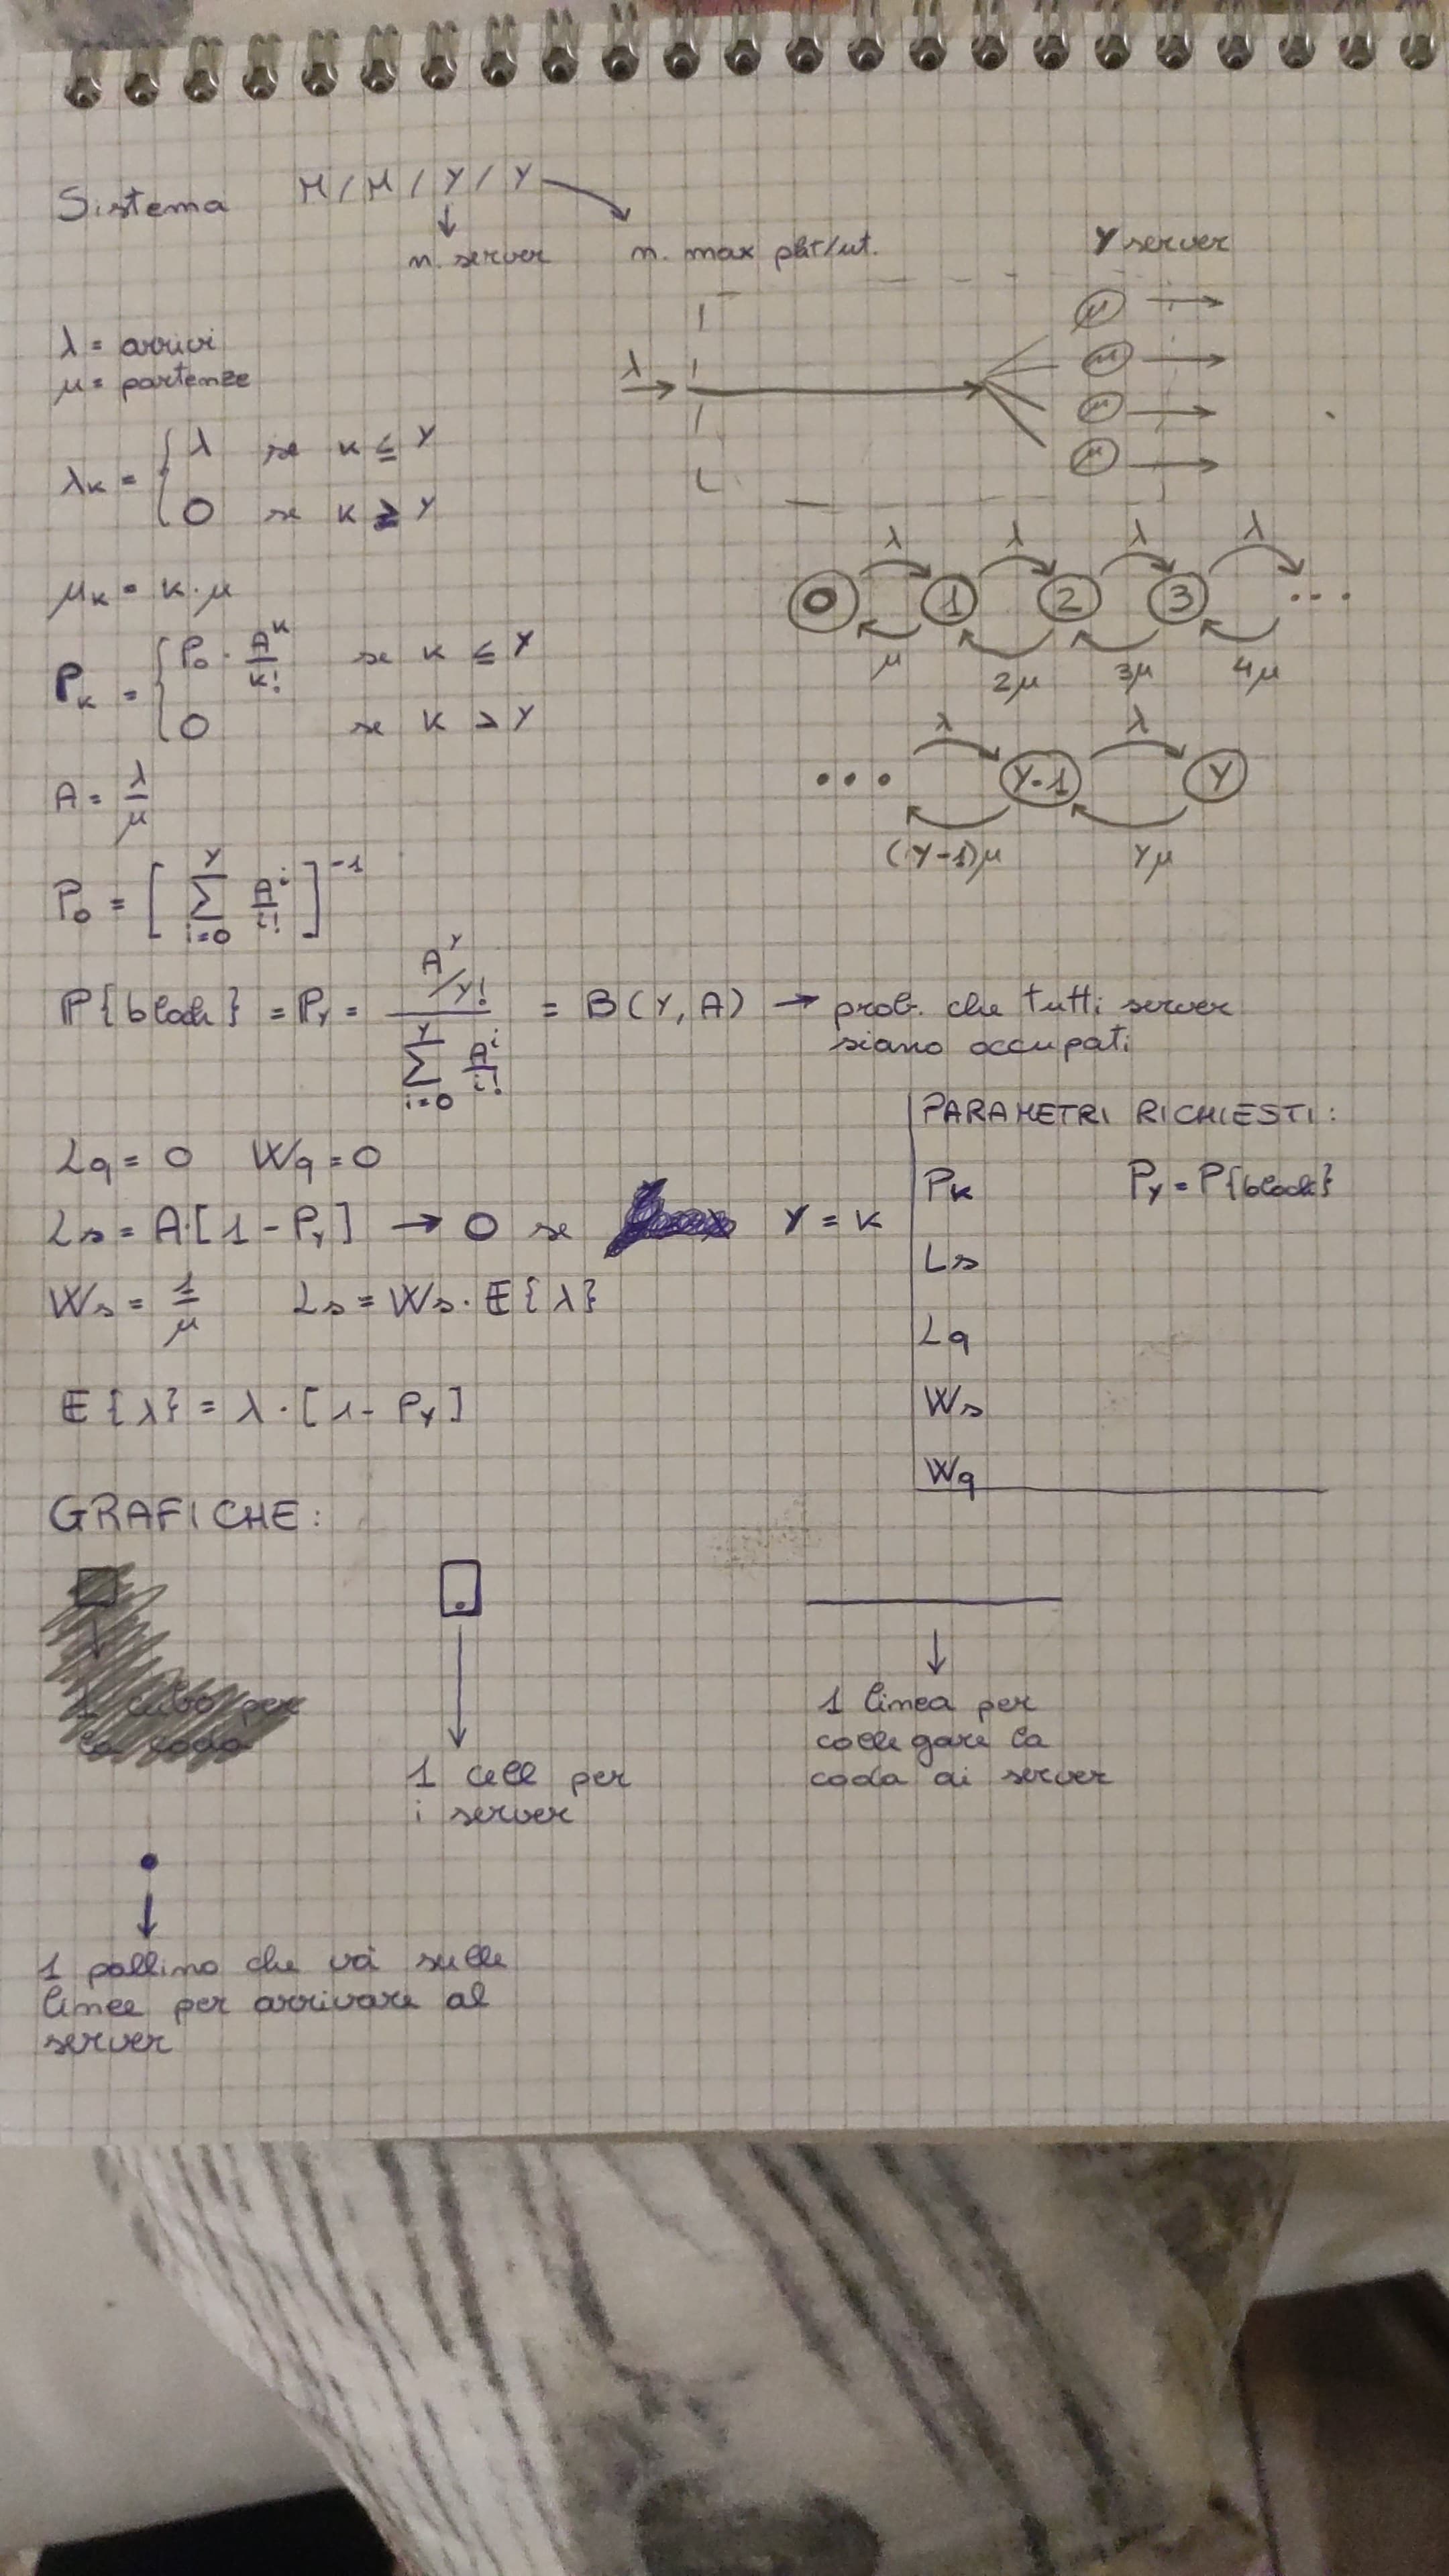 Sistema M/M/Y/Y
n. server
n. max pkt/ut.
Y server
λ = arrivi
μ = partenze
λ
μ
μ
μ
μ
λk = { λ se k ≤ Y
0 se k ≥ Y
μk = k·μ
λ λ λ λ
0 1 2 3 ...
μ 2μ 3μ 4μ
Pk = { P0 · A^k/k! se k ≤ Y
0 se k > Y
λ λ
... Y-1 Y
(Y-1)μ Yμ
A = λ/μ
P0 = [ Σ_{i=0}^{Y} A^i/i! ]^-1
P{block} = PY = (A^Y/Y!) / (Σ_{i=0}^{Y} A^i/i!) = B(Y, A) → prob. che tutti server
siano occupati
Lq = 0 Wq = 0
Ls = A·[1 - PY] → 0 se Y = k
Ws = 1/μ Ls = Ws · E{λ}
E{λ} = λ · [1 - PY]
PARAMETRI RICHIESTI:
Pk PY = P{block}
Ls
Lq
Ws
Wq
GRAFICHE:
1 cubo per
la coda
1 cell per
i server
1 linea per
collegare la
coda ai server
1 pallino che và sulle
linee per arrivare al
server